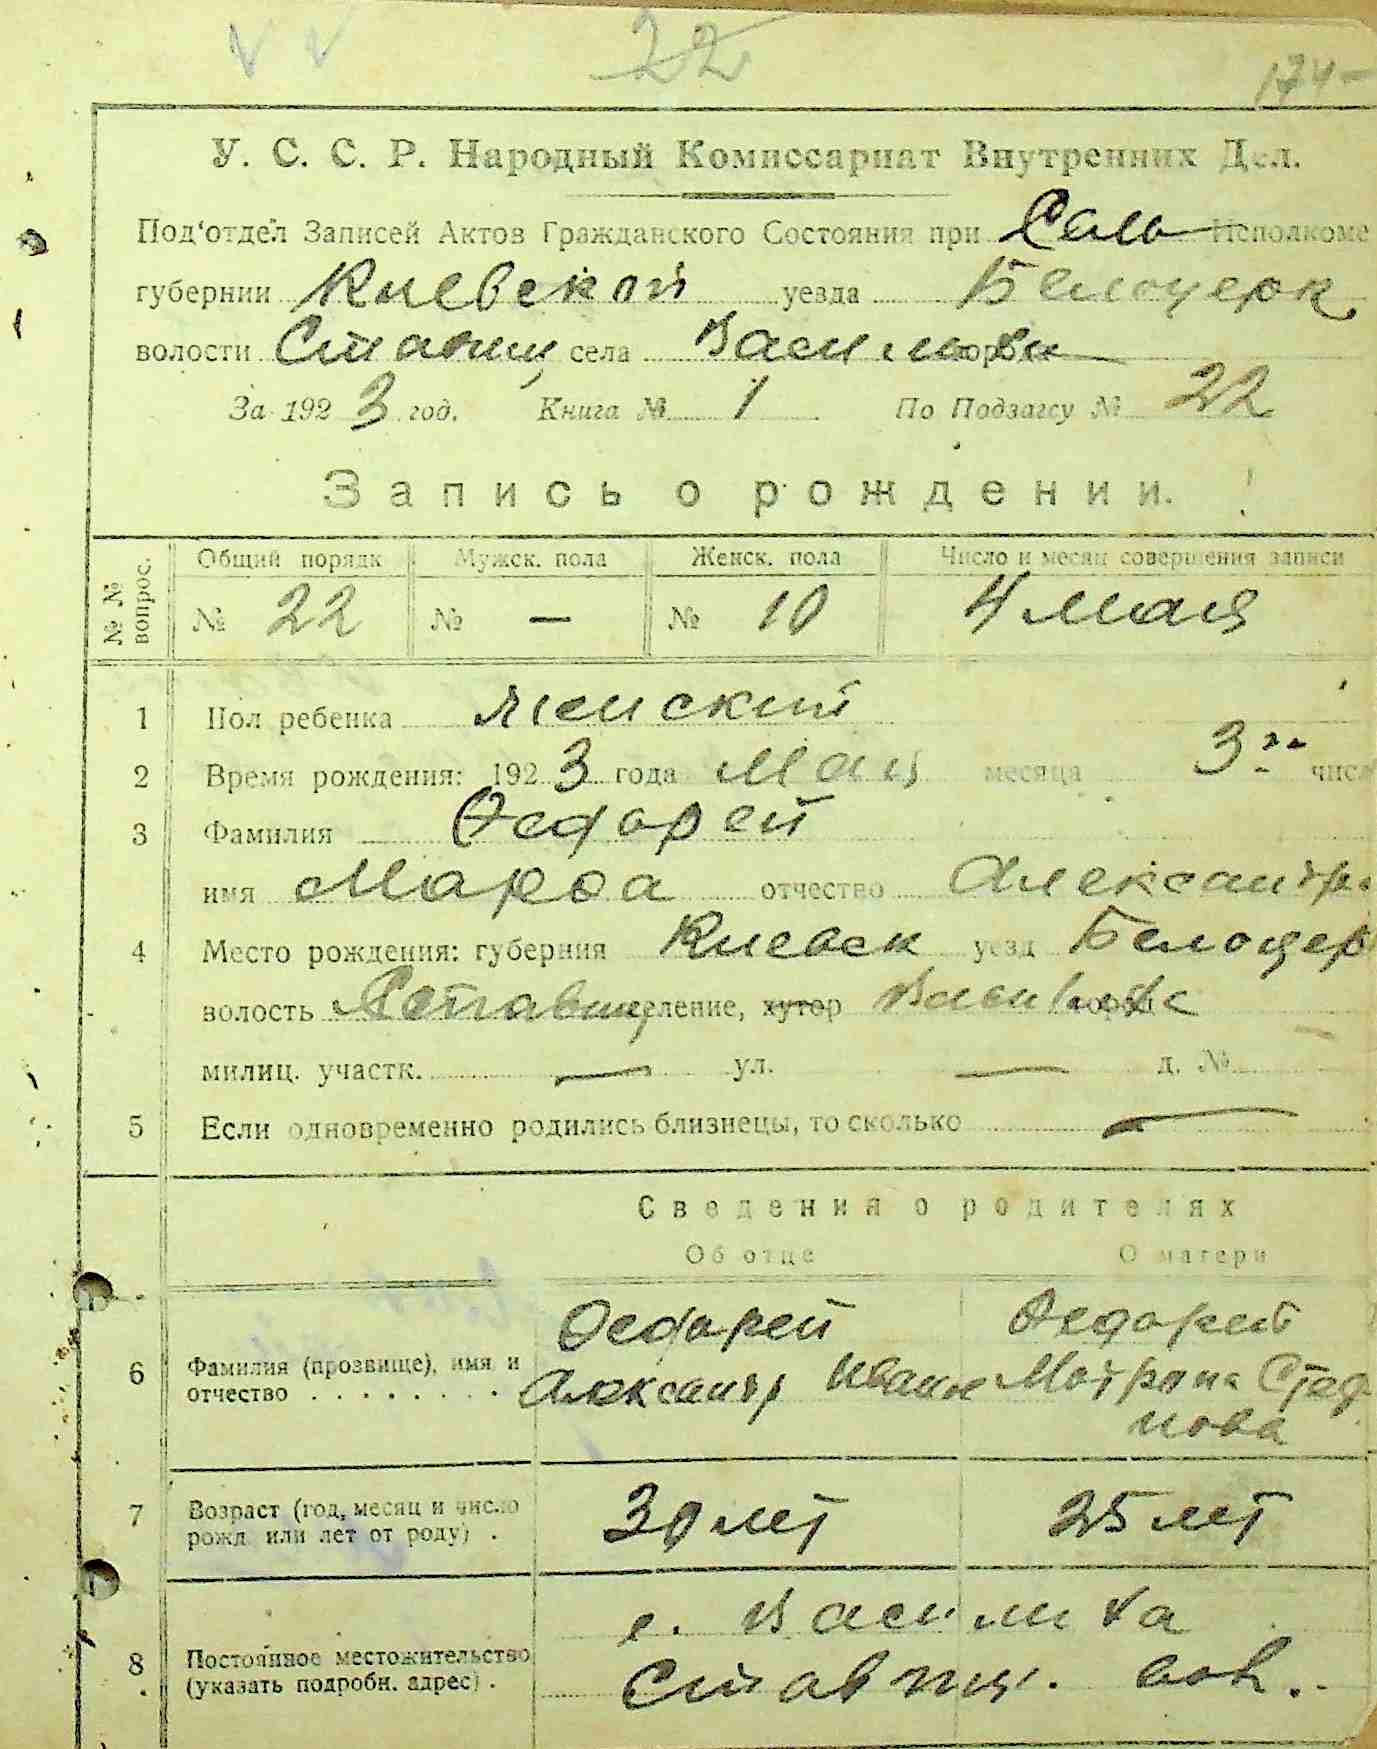 22
174
У. С. С. Р. Народный Комиссариат Внутренних Дел.
Под‘отдел Записей Актов Гражданского Состояния при Сель Исполкоме
губернии Киевской уезда Белоцерк
волости Ставищ села
За 1923 год. Книга № 1 По Подзагсу № 22
Запись о рождении.
№ № вопрос.
Общий порядк Мужск. пола Женск. пола Число и месяц совершения записи
№ 22 № — № 10 4 мая
1 Пол ребенка женский
2 Время рождения: 1923 года Мая месяца 3го числ
3 Фамилия Федорей
имя Марфа отчество Александр.
4 Место рождения: губерния Киевск уезд Белоцер
волость Ставищ селение, хутор
милиц. участк. — ул. — д. №
5 Если одновременно родились близнецы, то сколько —
Сведения о родителях
Об отце О матери
Федорей Федорей
6 Фамилия (прозвище), имя и
отчество . . . . . . . . . Александр Иванов Мотрона Стеф
нова
7 Возраст (год, месяц и число
рожд. или лет от роду) . 30 лет 25 лет
с. Василиха
8 Постоянное местожительство
(указать подробн. адрес) . Ставищ. вол.